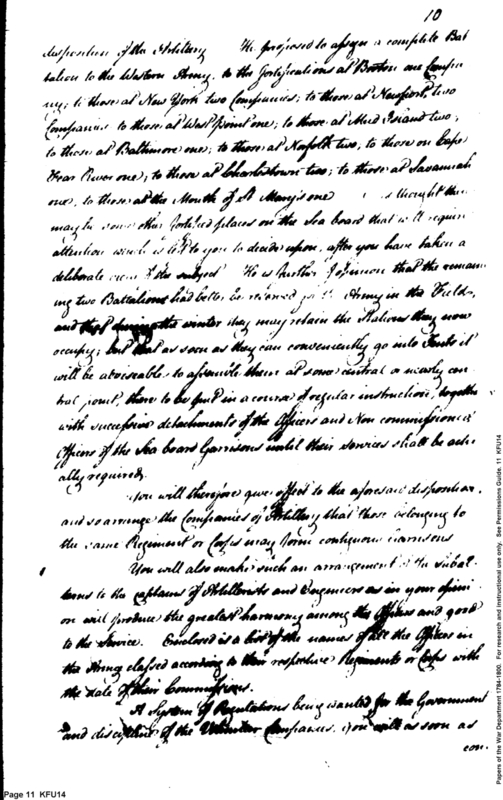 10
disposition of the Artillery He proposed to assign a complete Bat
talion to the Western Army, to the fortifications at Boston one Compa
ny; to those at New York two Companies; to those at Newport, two
Companies to those at West point one; to those at Mud Island two;
to those at Baltimore one; to those at Norfolk two, to those on Cape
Fear River one; to those at Charlestown two; to those at Savannah
one, to those at the Mouth of St Mary's one is thought there
may be some other fortified places on the Sea board that will require
attention which is left to you to decide upon, after you have taken a
deliberate view of the subject He is further of opinion that the remain
ing two Battalions had better be reserved for the Army in the Field,
and that during the winter they may retain the Stations they now
occupy; but that as soon as they can conveniently go into Tents it
will be adviseable to assemble them at some central or nearly cen
tral point, there to be put in a course of regular instruction, together
with successive detachments of the Officers and Non commissioned
Officers of the Sea board Garrisons until their services shall be actu
ally required.
You will therefore give effect to the aforesaid disposition,
and so arrange the Companies of Artillery that those belonging to
the same Regiment or Corps may form contiguous Garrisons
You will also make such an arrangement of the subal
terns to the captains of Artillerists and Engineers as in your opini
on will produce the greatest harmony among the Officers and good
to the Service. Enclosed is a list of the names of all the Officers in
the Army classed according to their respective Regiments or Corps with
the date of their Commissions.
A System of Regulations being wanted for the Government
and discipline of the Volunteer Companies. you will as soon as
con.
Page 11 KFU14
Papers of the War Department 1784-1800. For research and instructional use only. See Permissions Guide. 11 KFU14